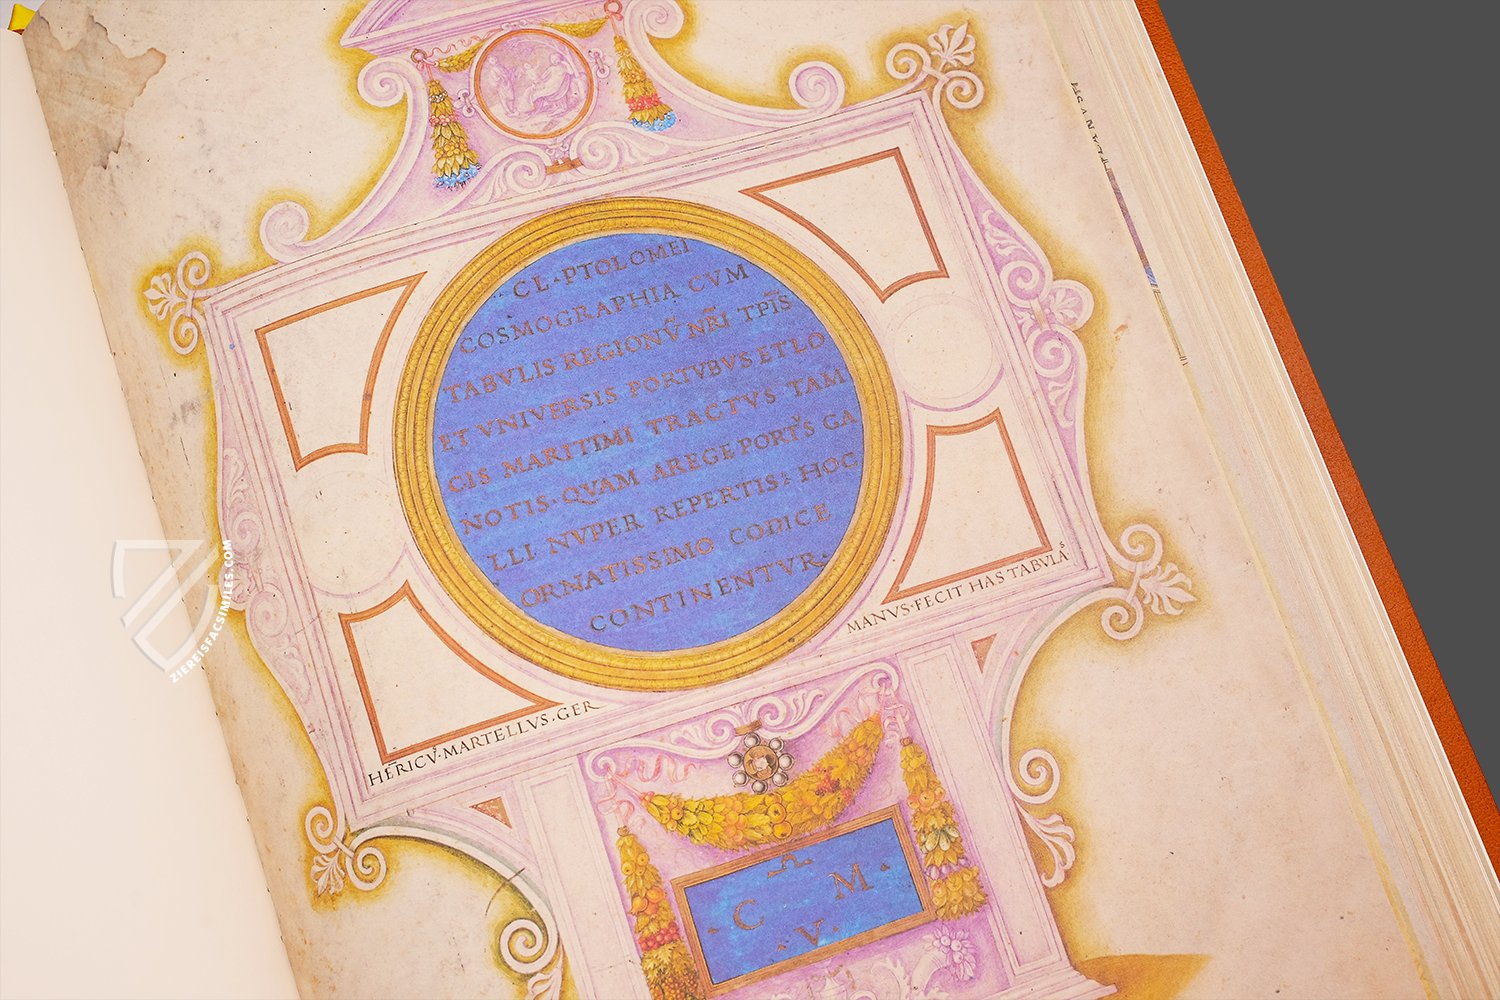 CL · PTOLOMEI
COSMOGRAPHIA CVM
TABVLIS REGIONV̄ NR̄I TPĪS
ET VNIVERSIS PORTVBVS ET LO
CIS MARITIMI TRACTVS TAM
NOTIS · QVAM AREGE PORTˢ GA
LLI NVPER REPERTIS : HOC
ORNATISSIMO CODICE
CONTINENTVR ·
HĒRICVˢ · MARTELLVS · GER
MANVS · FECIT HAS TABVLAˢ
C M
V
ZIEREISFACSIMILES.COM